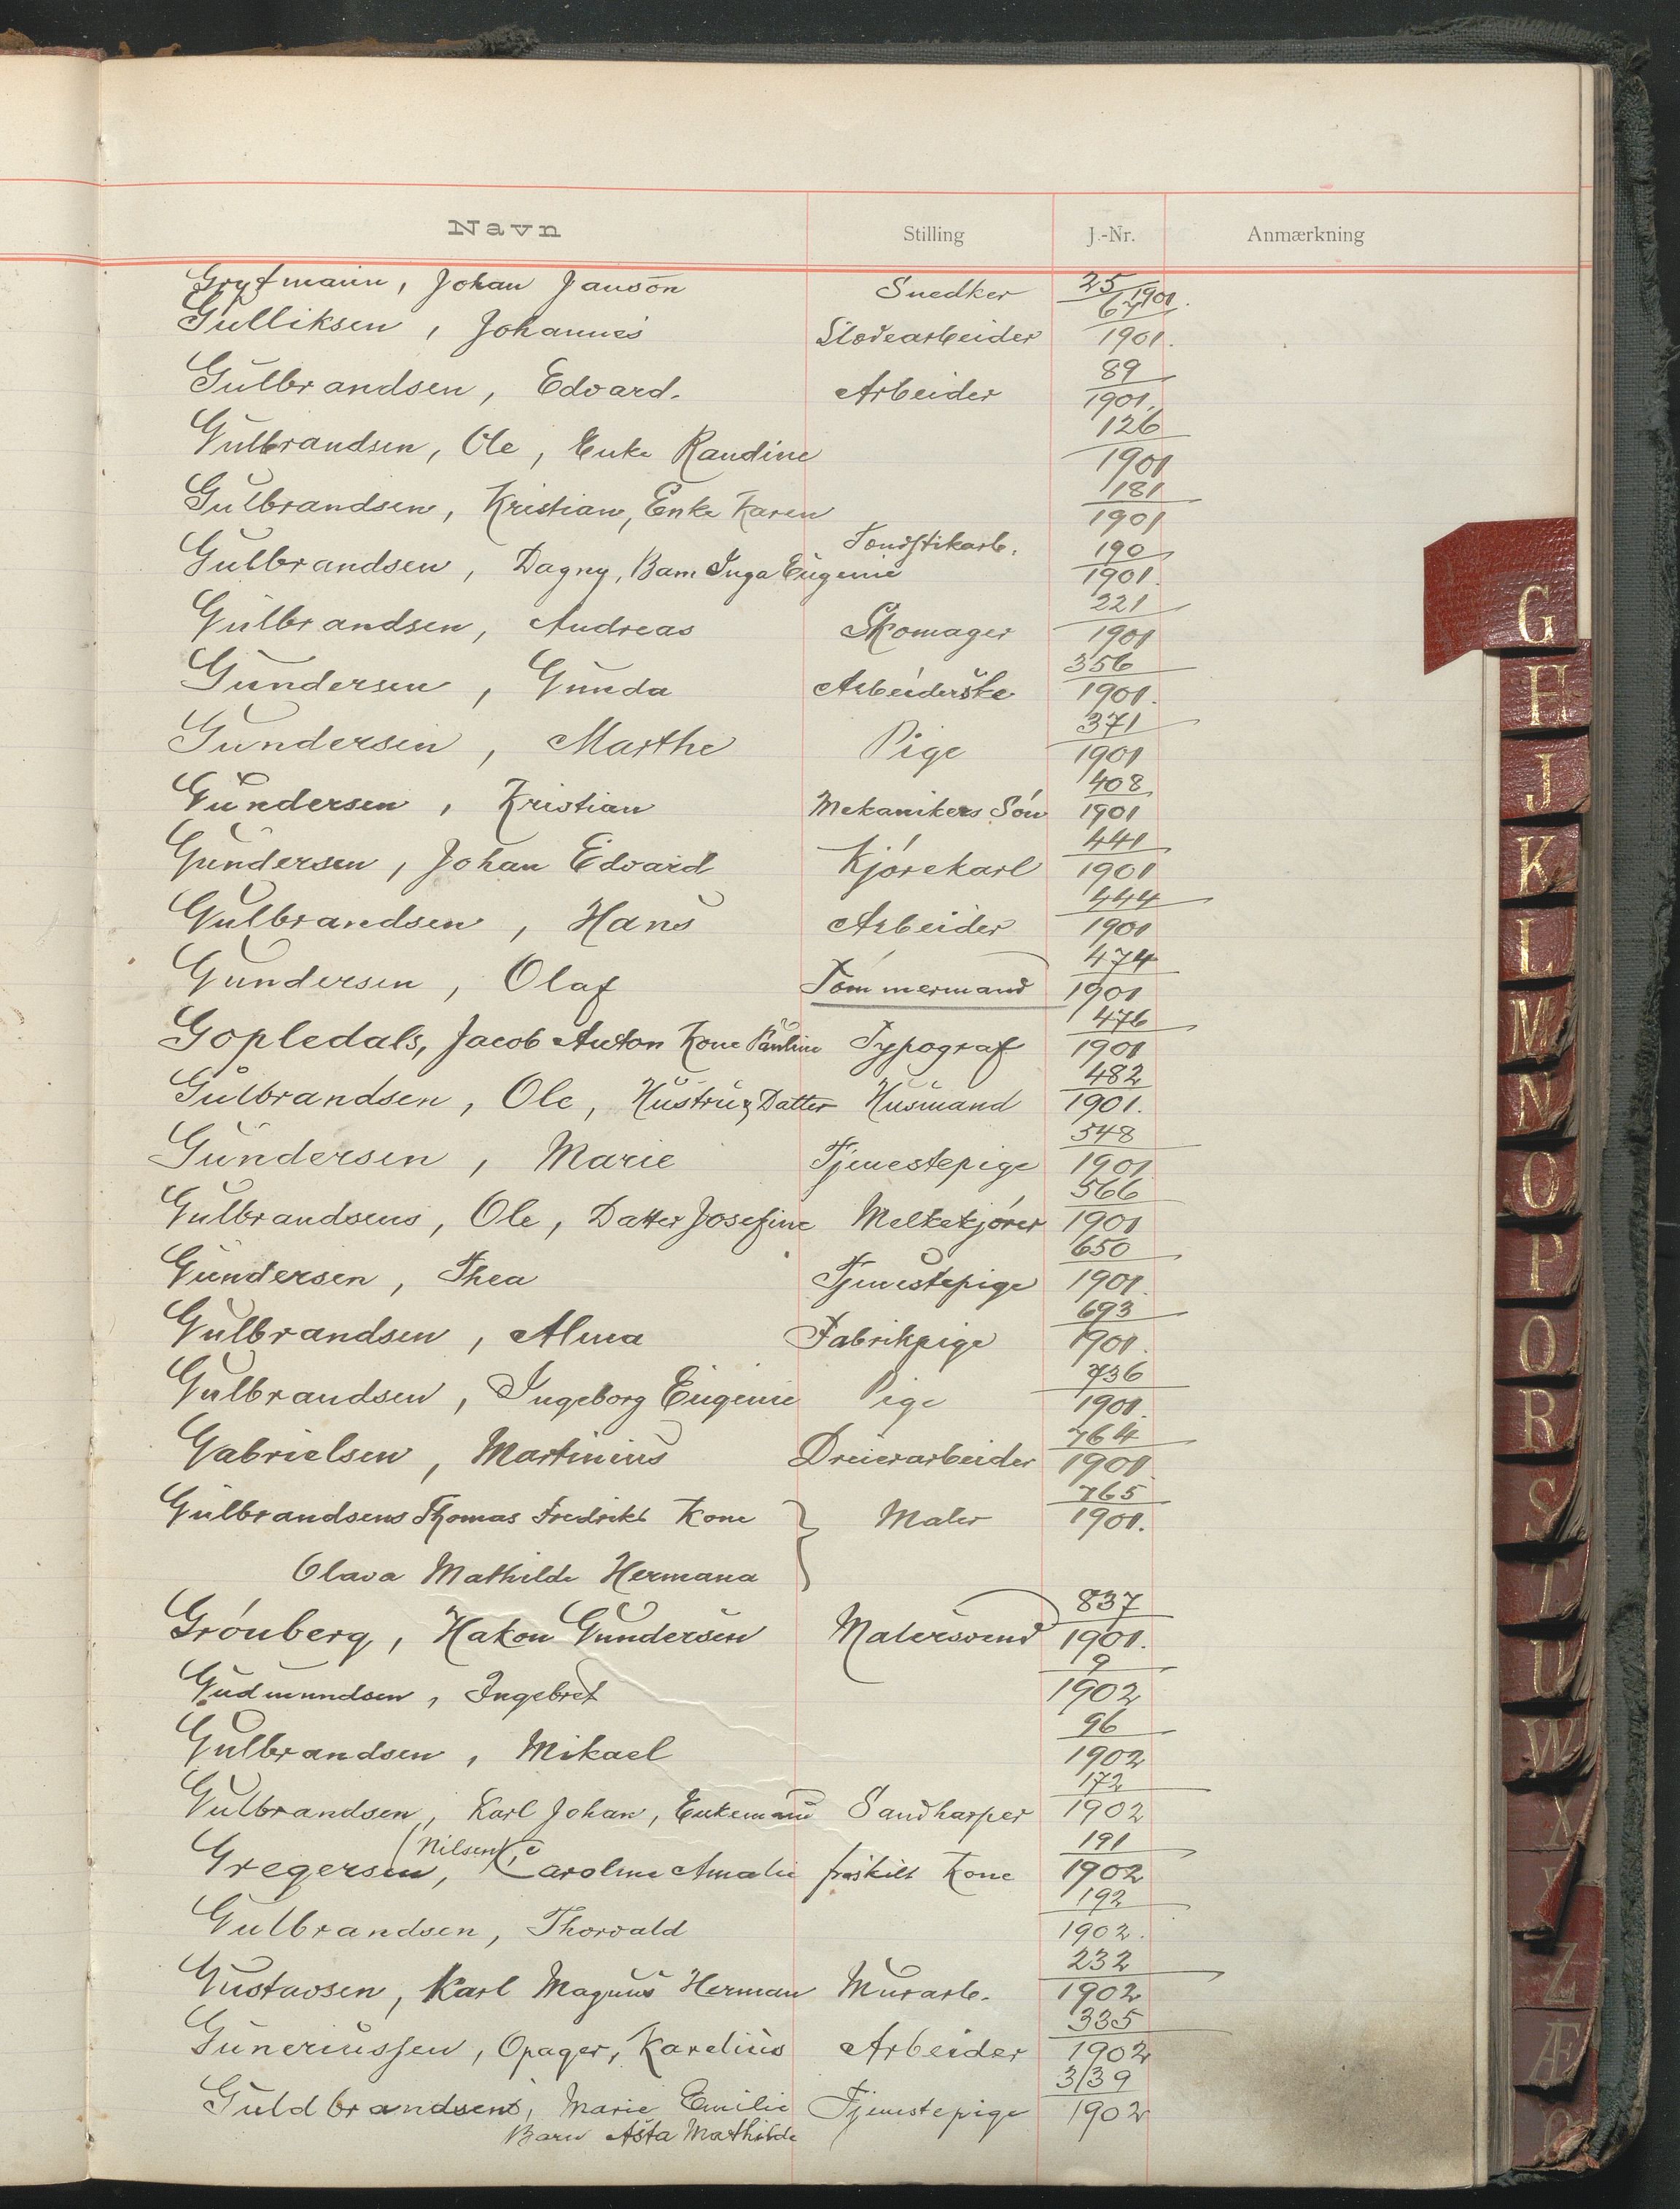 Navn Stilling J.-Nr. Anmærkning
Johan Janson Snedker 25/1901.
Gulliksen, Johannes arbeider 67/1901.
Gulbrandsen, Edvard. Arbeider 89/1901.
Gulbrandsen, Ole, Enke Randine 126/1901
Gulbrandsen, Kristian, Enke Karen 181/1901
Gulbrandsen, Dagny, Barn Inga Eugenie Fyrstikarb. 190/1901.
Gulbrandsen, Andreas Skomager 221/1901
Gundersen, Gunda Arbeiderske 356/1901.
Gundersen, Marthe Pige 371/1901
Gundersen, Kristian Mekanikers Søn 408/1901
Gundersen, Johan Edvard Kjørekarl 441/1901
Gulbrandsen, Hans Arbeider 444/1901
Gundersen, Olaf Tømmermand 474/1901
Gopledals, Jacob Anton Kone Pauline Typograf 476/1901
Gulbrandsen, Ole, Hustru & Datter Husmand 482/1901.
Gundersen, Marie Tjenestepige 548/1901
Gulbrandsens, Ole, Datter Josefine Melkekjører 566/1901
Gundersen, Thea Tjenestepige 650/1901.
Gulbrandsen, Alma Fabrikpige 693/1901.
Gulbrandsen, Ingeborg Eugenie Pige 736/1901.
Gabrielsen, Martinius Dreierarbeider 764/1901.
Gulbrandsens Thomas Fredriks Kone Maler 765/1901.
Olava Mathilde Hermana
Grønberg, Hakon Gundersen Malersvend 837/1901.
Gudmundsen, Ingebret 9/1902
Gulbrandsen, Mikael 96/1902
Gulbrandsen, Karl Johan, Enkemand Sandharper 172/1902
Gregersen, (Nilsen), Caroline Amalie fraskilt Kone 191/1902
Gulbrandsen, Thorvald 192/1902.
Gustavsen, Karl Magnus Herman Murarb. 232/1902
Guneriussen, Opager, Karelius Arbeider 335/1902
Guldbrandsens, Marie Emilie Tjenestepige 339/1902
Barn Asta Mathilde
G
H
J
K
L
M
N
O
P
Q
R
S
T
U
W
X
Z
Æ